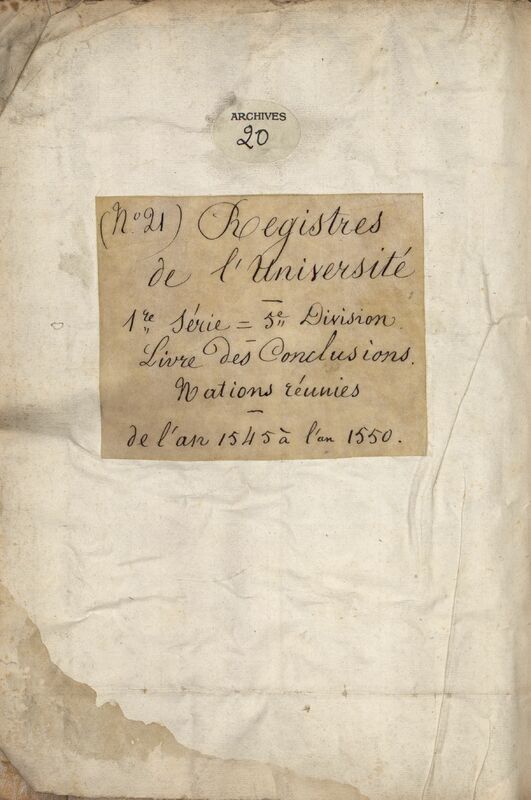 ARCHIVES
20
(Nº 21) Registres
de l'Université
1re Série = 5e Division.
Livre des Conclusions.
Nations réunies
de l'an 1545 à l'an 1550.